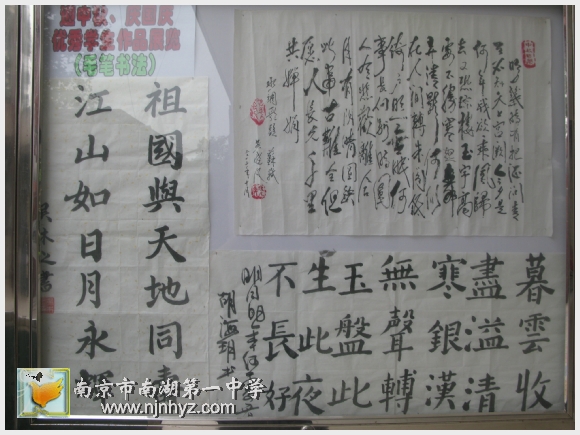 迎中秋、庆国庆
优秀学生作品展览
（毛笔书法）
祖國與天地同壽
江山如日月永
明月幾時有把酒問青
天不知天上宮闕今夕是
何年我欲乘風歸
去又恐瓊樓玉宇高
處不勝寒起舞
弄清影何似
在人間轉朱閣低
綺戶照無眠不應
有恨何
事長向別時圓
人有悲歡離合
月有陰晴圓缺
此事古難全但
願人長久千里
共嬋娟
暮雲收
盡溢清
寒銀漢
無聲轉
玉盤此
生此夜
不長好
明月明年何
胡海玥书
南京市南湖第一中学
www.njnhyz.com